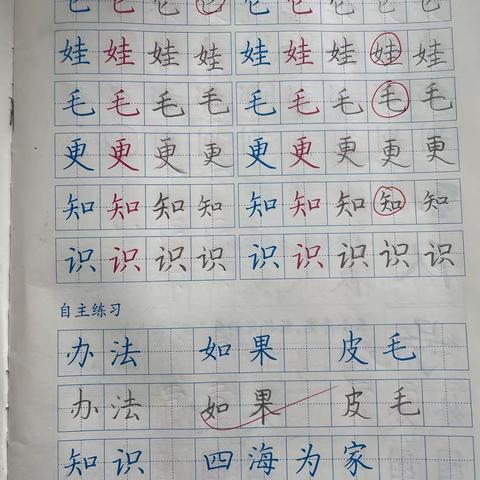 它它它它它它它它它
娃娃娃娃娃娃娃娃娃
毛毛毛毛毛毛毛毛毛
更更更更更更更更更
知知知知知知知知知
识识识识识识识识识
自主练习
办法 如果 皮毛
办法 如果 皮毛
知识 四海为家